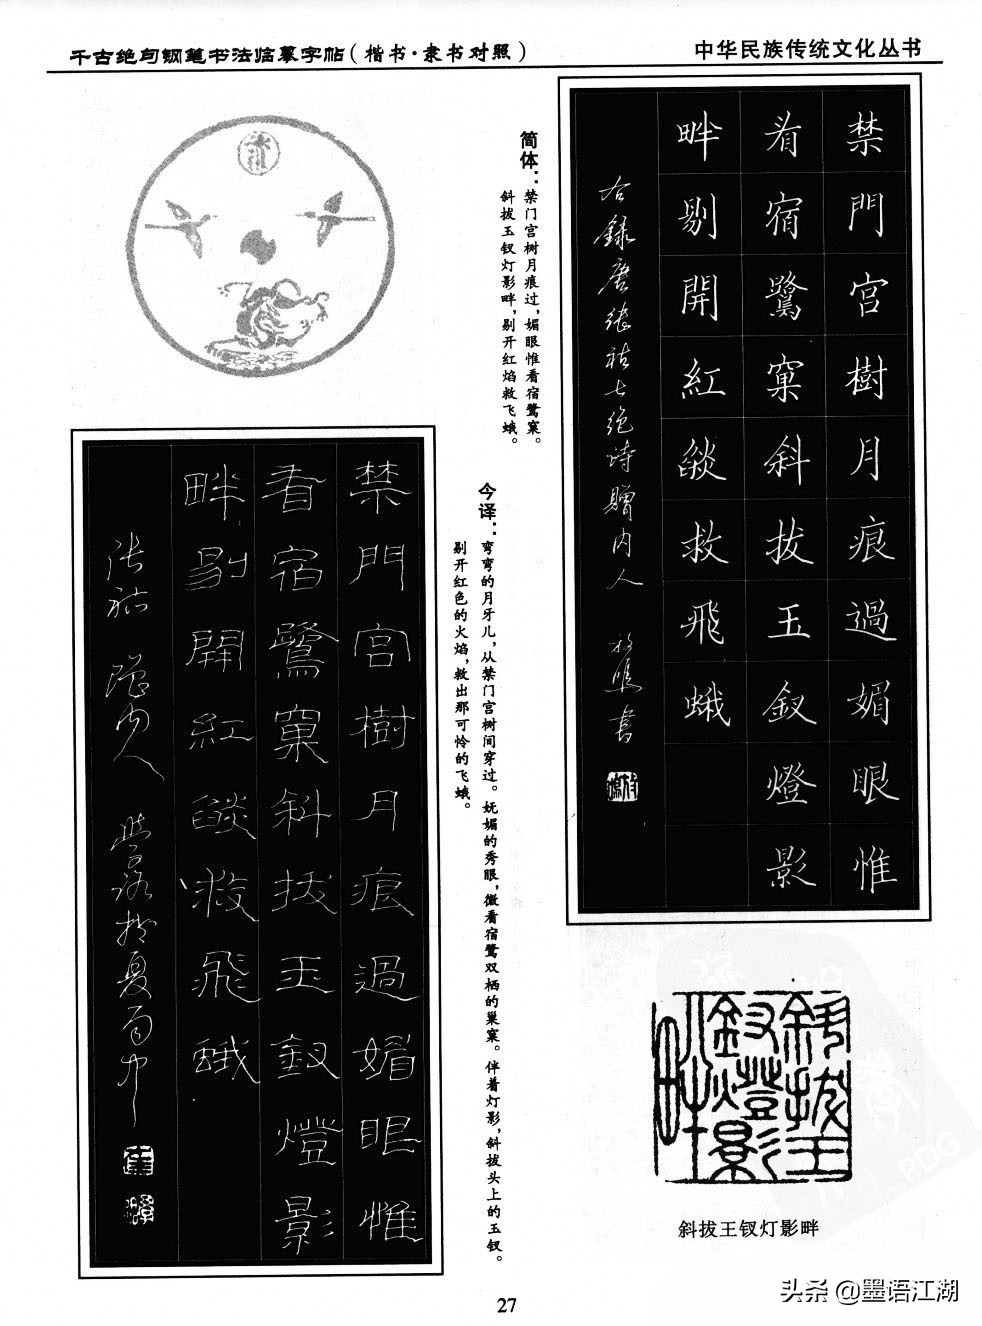 千古绝句钢笔书法临摹字帖(楷书·隶书对照)
中华民族传统文化丛书
禁門宫樹月痕過媚眼惟
看宿鷺窠斜拔玉釵燈影
畔剔開紅燄救飛蛾
右録唐張祜七绝诗赠内人
书
简体:禁门宫树月痕过,媚眼惟看宿鹭窠。
斜拔玉钗灯影畔,剔开红焰救飞蛾。
今译:弯弯的月牙儿,从禁门宫树间穿过。妩媚的秀眼,微看宿鹭双栖的巢窠。伴着灯影,斜拔头上的玉钗。
剔开红色的火焰,救出那可怜的飞蛾。
禁門宫樹月痕過媚眼惟
看宿鷺窠斜拔玉釵燈影
畔剔開紅燄救飛蛾
张祜 赠内人
斜拔玉
釵燈影
畔
斜拔王钗灯影畔
27
头条@墨语江湖